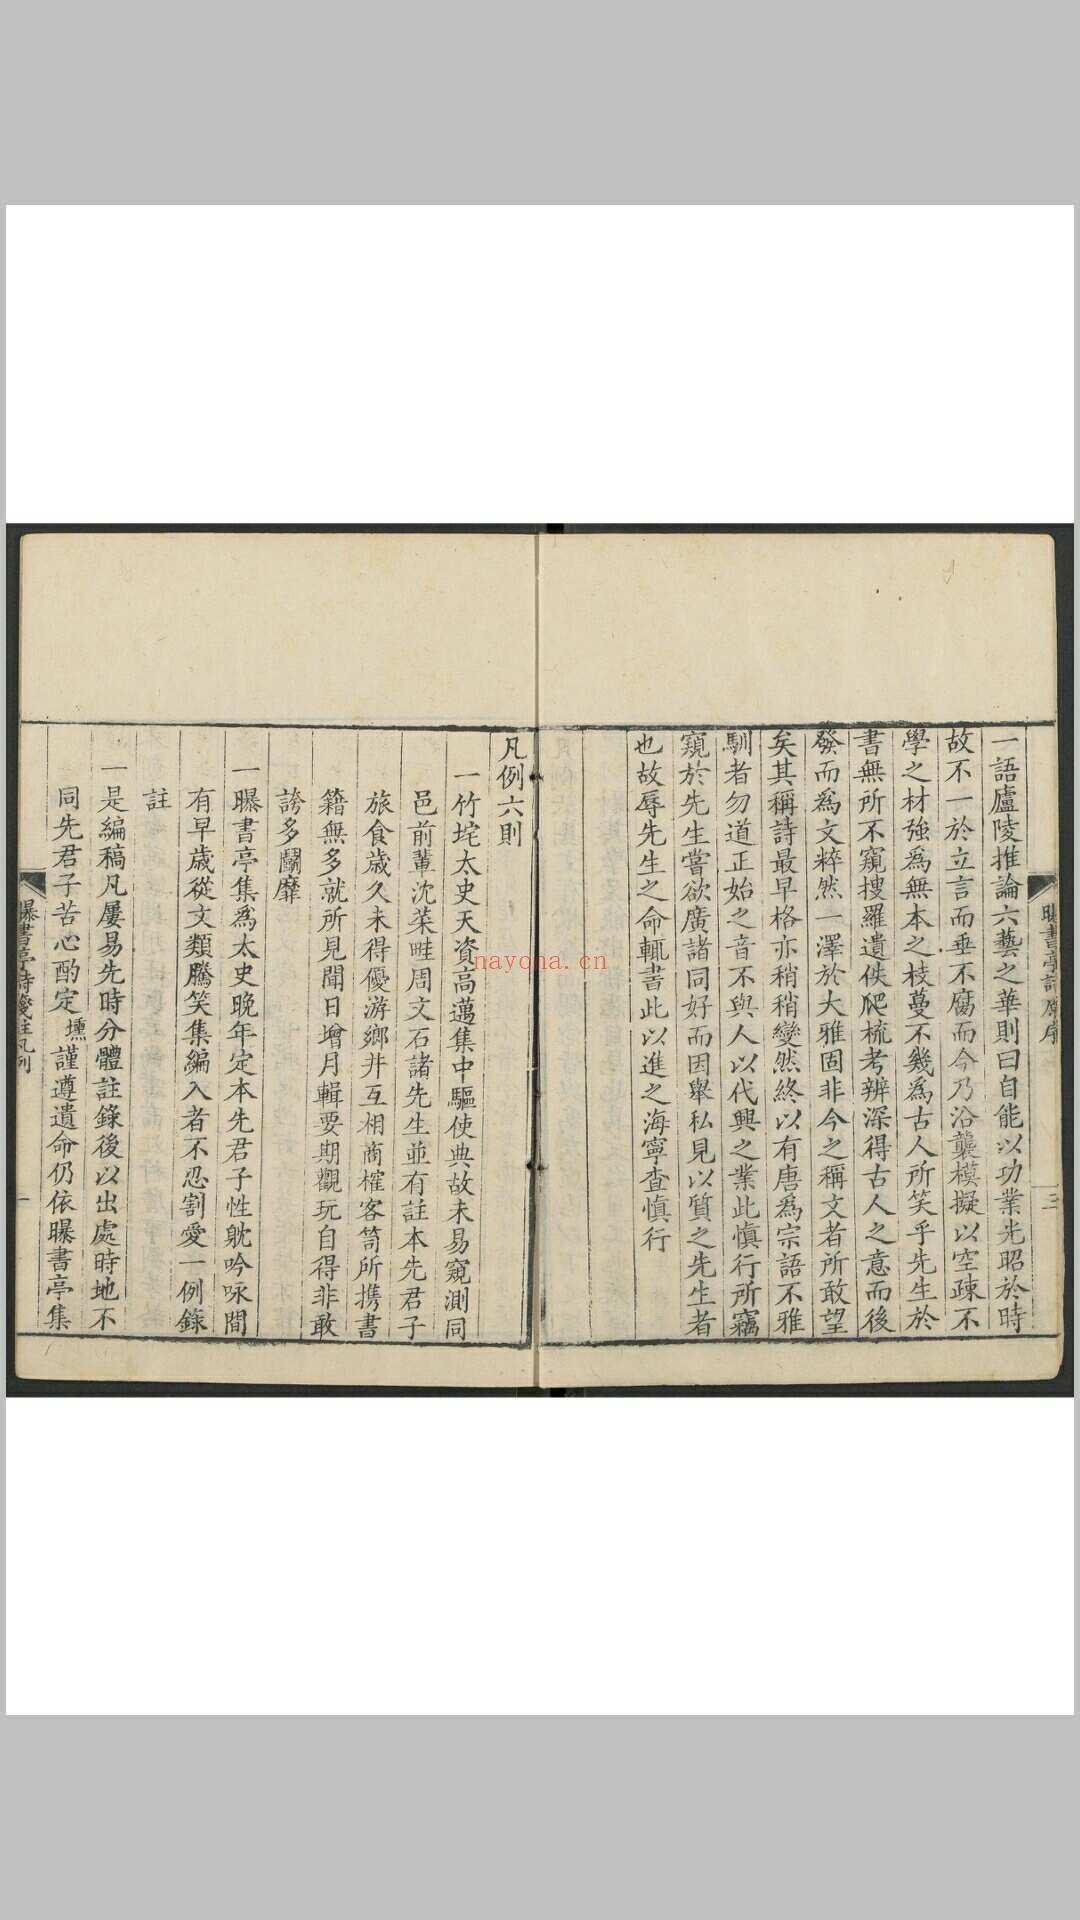 曝書亭詩 序
三
一語廬陵推論六藝之華則曰自能以功業光昭於時
故不一於立言而垂不腐而今乃沿襲模擬以空疎不
學之材強為無本之枝蔓不幾為古人所笑乎先生於
書無所不窺搜羅遺佚爬梳考辨深得古人之意而後
發而為文粹然一澤於大雅固非今之稱文者所敢望
矣其稱詩最早格亦稍稍變然終以有唐為宗語不雅
馴者勿道正始之音不與人以代興之業此慎行所竊
窺於先生嘗欲廣諸同好而因舉私見以質之先生者
也故辱先生之命輒書此以進之海寧查慎行
凡例六則
一竹垞太史天資高邁集中驅使典故未易窺測同
邑前輩沈菜畦周文石諸先生並有註本先君子
旅食歲久未得優游鄉井互相商榷客笥所携書
籍無多就所見聞日增月輯要期觀玩自得非敢
誇多鬭靡
一曝書亭集為太史晚年定本先君子性躭吟咏間
有早歲從文類騰笑集編入者不忍割愛一例錄
註
一是編稿凡屢易先時分體註錄後以出處時地不
同先君子苦心酌定壎謹遵遺命仍依曝書亭集
曝書亭詩箋註凡例
一
nayona.cn